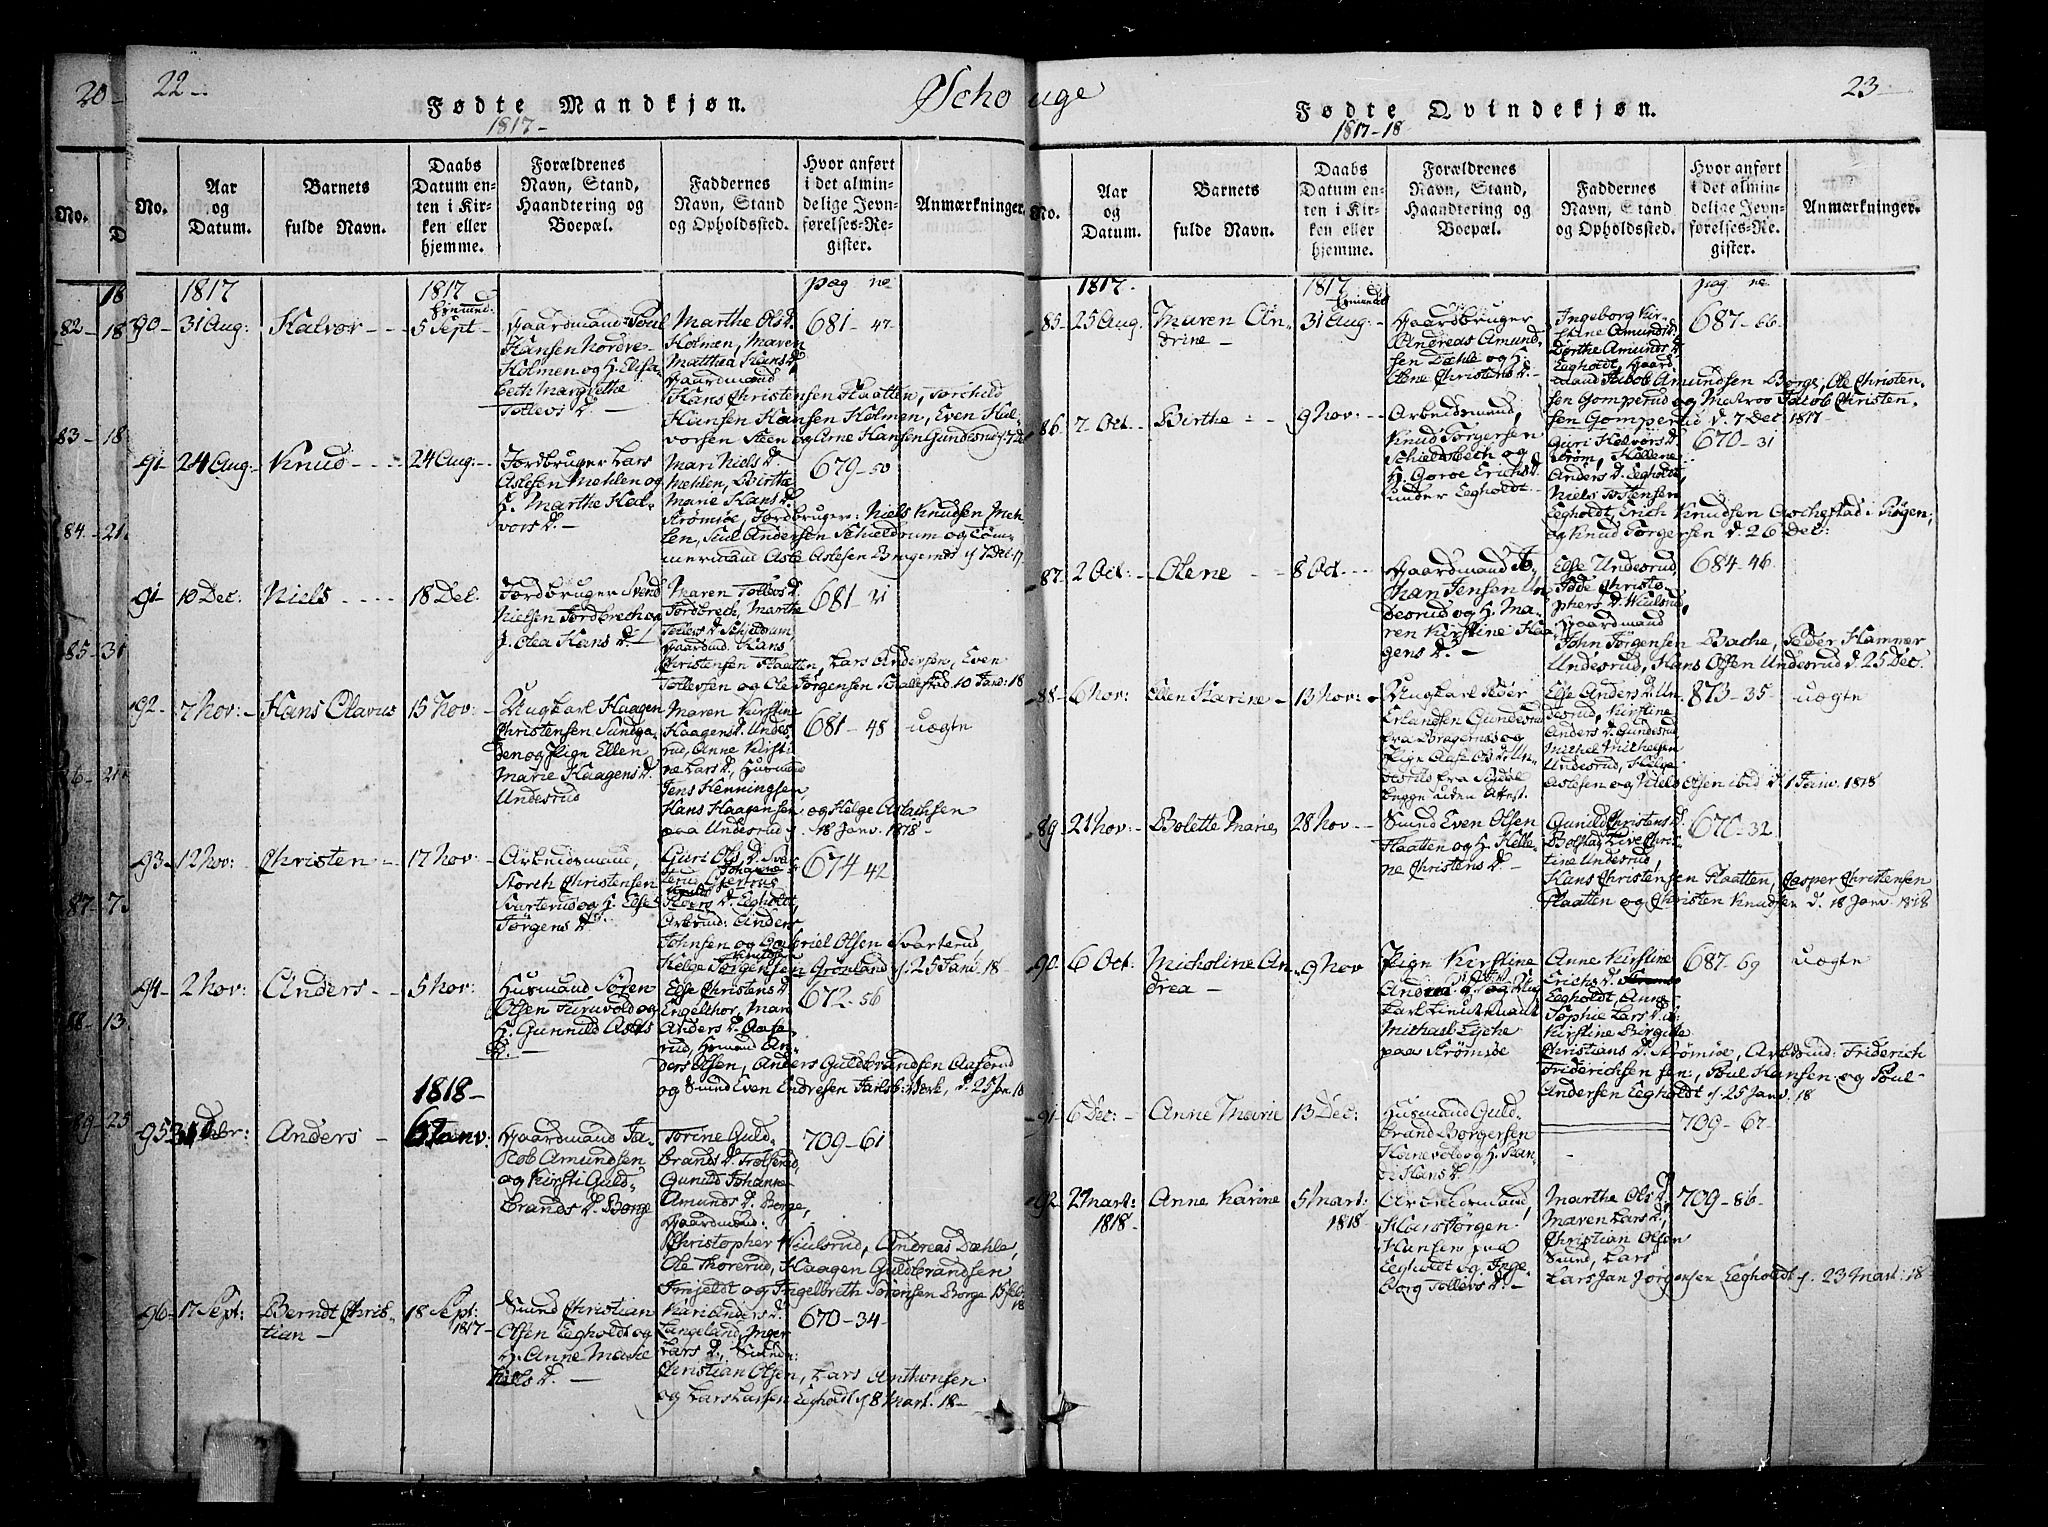 20-
22-
Fødte Mandkjøn.
1817-
No.
No.
Aar
og
Datum.
Barnets
fulde Navn.
Daabs
Datum en-
ten i Kir-
ken eller
hjemme.
Forældrenes
Navn, Stand,
Haandtering og
Boepæl.
Faddernes
Navn, Stand
og Opholdssted.
Hvor anført
i det almin-
delige Jevn-
førelses-Re-
gister.
Anmærkninger.
82- 18
83- 18
84- 21
85- 31
86- 21
87- 7
88- 13
89- 25
1817
1817
pag no
90- 31 Aug: Halvor
5 Sept-
Gaardmand Poul
Hansen Nordre-
Holmen og H. Elisa-
beth Margrethe
Tollevs D.-
Marthe Ols D.
Holmen, Maren
Matthea Hans D.
Gaardmænd
Hans Christensen Flaatten, Torchild
Hansen Hansen Holmen, Even Hal-
vorsen Steen og Arne Hansen Gundesrud
681-47-
91- 24 Aug:- Knud
24 Aug:-
Jordbruger Lars
Aslesen Mehlen og
H. Marthe Hal-
vors D.-
Mari Niels D.
Mehlen, Birthe
Marie Hans D.
Strømsøe, Jordbruger: Niels Knudsen Meh-
len, Juul Andersen Schieldrum og Tøm-
mermand Asle Aslesen Bragernes d. 7 Dec. 17.
679-50
91- 10 Dec: Niels
18 Dec.
Jordbruger Svend
Nielsen Jordbrech og
H. Olea Hans D.
Maren Tollevs D.
Jordbrech, Marthe
Tollevs D. Schieldrum,
Gaardmd: Hans
Christensen Flaatten, Lars Andersen, Even
Tollevsen og Ole Jørgensen 10 Janv: 18
681-21
92- 7 Nov:- Hans Olavus
15 Nov:-
Ungkarl Haagen
Christensen
og Pigen Ellen
Marie Haagens D.
Undesrud
Maren Kirstine
Haagens D. Undes-
rud, Anne Kirsti-
ne Lars D., Husmænd
Jens Henningsen,
Hans Haagensen og Helge Aslachsen
paa Undesrud d. 18 Janv. 1818-
681-48
uægte
93- 12 Nov: Christen
17 Nov:-
Arbeidsmand,
Storch Christensen
Svarterud og H. Else
Jørgens D.
Guri Ols D. Svar-
terud
D. Eegholdt,
Arbmd: Anders
Johnsen og Gabriel Olsen Svarterud,
Helge Jørgensen Grønland d. 25 Janv. 18-
674-42
94- 2 Nov: Anders
5 Nov:
Husmand Søren
Olsen Furuvold og
H. Gunnild Asles
D.-
Else Christens D.
Engelthor, Mari
Anders D. Aase-
rud, Hsmænd An-
ders Olsen, Anders Guldbrandsen Aaserud
og Smed Even Endresen Jarlsb: Verk, d. 25 Jan 18
672-56
1818-
95- 31 Dbr: Anders
6 Janv:
Gaardmand Ja-
kob Amundsen
og Kirsti Guld-
brands D. Borge
Torine Guld-
brands D. Trolserud,
Gunild Johanne
Amunds D. Borge,
Gaardmænd:
Christopher Wiulsrud, Andreas Dæhle,
Ole Thorerud, Haagen Guldbrandsen
Foseldt og Ingelbreth Sørensen Borge 15 feb:
18
709-61
96- 17 Sept: Berndt Chris-
tian-
18 Sept:
1817-
Smed Christian
Olsen Eegholdt og
H. Anne Marie
Niels D.-
Kari Anders D.
Langeland, Inger
Lars D., Smede:
Christian Olsen, Lars Anthonsen
og Lars Larsen Eegholdt d. 8 Mart. 18-
670-34-
Schouge
23-
Fødte Qvindekjøn.
1817-18
No.
Aar
og
Datum.
Barnets
fulde Navn.
Daabs
Datum en-
ten i Kir-
ken eller
hjemme.
Forældrenes
Navn, Stand,
Haandtering og
Boepæl.
Faddernes
Navn, Stand
og Opholdssted.
Hvor anført
i det almin-
delige Jevn-
førelses-Re-
gister.
Anmærkninger.
1817.
1817
pag no
85- 25 Aug. Maren An-
drine-
31 Aug:-
Gaardbruger
Andreas Amund-
sen Dæhle og H.
Elene Christens D.-
Ingeborg Kir-
stine Amunds D.
Dorthe Amunds D.
Eegholdt, Gaard-
mand Jakob Amundsen Borge, Ole Christen-
sen Gomperud og Matros Jacob Christen-
sen Gomperud d. 7 Dec. 1817-
687-66-
86- 7 Oct.- Birthe
9 Nov:-
Arbeidsmand,
Knud Torgersen
Schieldsbeth og
H. Goroe Erichs D.
under Eegholdt-
Guri Halvors D.
Strøm, Hellene
Anders D. Eegholdt,
Niels Tostensen
Eegholdt, Erich Knudsen Aschestad i Sigen,
og Knud Torgersen d. 26 Dec:
670-31
87- 2 Oct:- Olene
8 Oct.
Gaardmand Jo-
han Jensen Un-
desrud og H. Ma-
ren Kirstine Haa-
gens D.-
Else Undesrud,
Jøde Christo-
phers D. Wiulsrud,
Gaardmænd
John Jørgensen Bache, Peder Hammer
Undesrud, Hans Olsen Undesrud d. 25 Dec.
684-46-
88- 6 Nov: Ellen Karine
13 Nov:
Ungkarl Peder
Erlandsen Gundesrud
fra Bragernes og
Pigen Aase Ols D. Un-
desrud fra Sigdal
begge uden Attest.
Else Anders D. Un-
desrud, Kirstine
Anders D. Gundesrud
Michel Michelsen
Undesrud, Helge
Aslesen og Niels Olsen ibid d. 1 Janv. 1818
873-35-
uægte
89- 21 Nov:- Bolette Marie
28 Nov-
Smed Even Olsen
Flaatten og H. Helle-
ne Christens D.-
Gunild Christens D.
Bolstad, Live Chri-
stine Undesrud,
Hans Christensen Flaatten, Casper Christensen
Flaatten og Christen Knudsen d. 18 Janv. 1818
670-32
90- 6 Oct. Micholine An-
drea-
9 Nov
Pigen Kirstine
Andrea
karl Lieutenant
Michael Lyche
paa Strømsøe
Anne Kirstine
Erichs D.
Eegholdt, Anne
Sophie Lars D.
Kirstine Birgitte
Christians D. Strømsøe, Arbdsmd: Friderich
Friderichsen, Poul Hansen og Poul
Andersen Eegholdt d. 25 Janv. 18
687-69
uægte
91- 6 Dec:- Anne Marie
13 Dec:
Husmand Guld-
brand Borgersen
og H. Kan-
di Hans D.
709-67-
92- 2 Mart: Anne Karine
1818-
5 Mart:
1818
Arbeidsmand,
Hans Jørgen
Hansen paa
Eegholdt og Inge-
borg Tollevs D.-
Marthe Ols D.,
Maren Lars D.,
Christian Olsen
Smed, Lars
Lars Jan Jørgensen Eegholdt d. 23 Mart: 18
709-86-